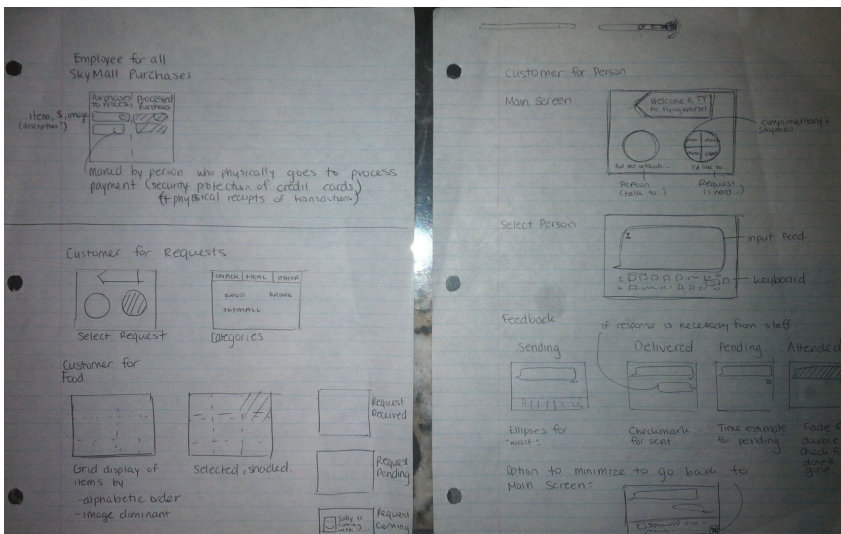 Employee for all
SkyMall Purchases
Purchases Processed
to Process Purchases
item, $, image
(description?)
marked by person who physically goes to process
payment (security protection of credit cards)
(+ physical receipts of transactions)
Customer for Requests
SNACK MEAL OTHER
FOOD DRINK
SKYMALL
Select Request
Categories
Customer for
Food
Grid display of
items by
-alphabetic order
-image dominant
Selected, shaded.
Request
Received
Request
Pending
Sally is
coming
with
Request
Coming
Customer for Person
Main Screen
Welcome & TY
for flying
complimentary +
Skymall
I'd like to
Person
(talk to)
Request
(I need...)
Select Person
I
input feed
keyboard
Feedback
if response is necessary from staff
Sending
Delivered
Pending
Attended
Ellipses for
"wait".
Checkmark
for sent.
Time estimate
for pending
Fade &
double
check for
done &
gone.
Option to minimize to go back to
Main Screen: